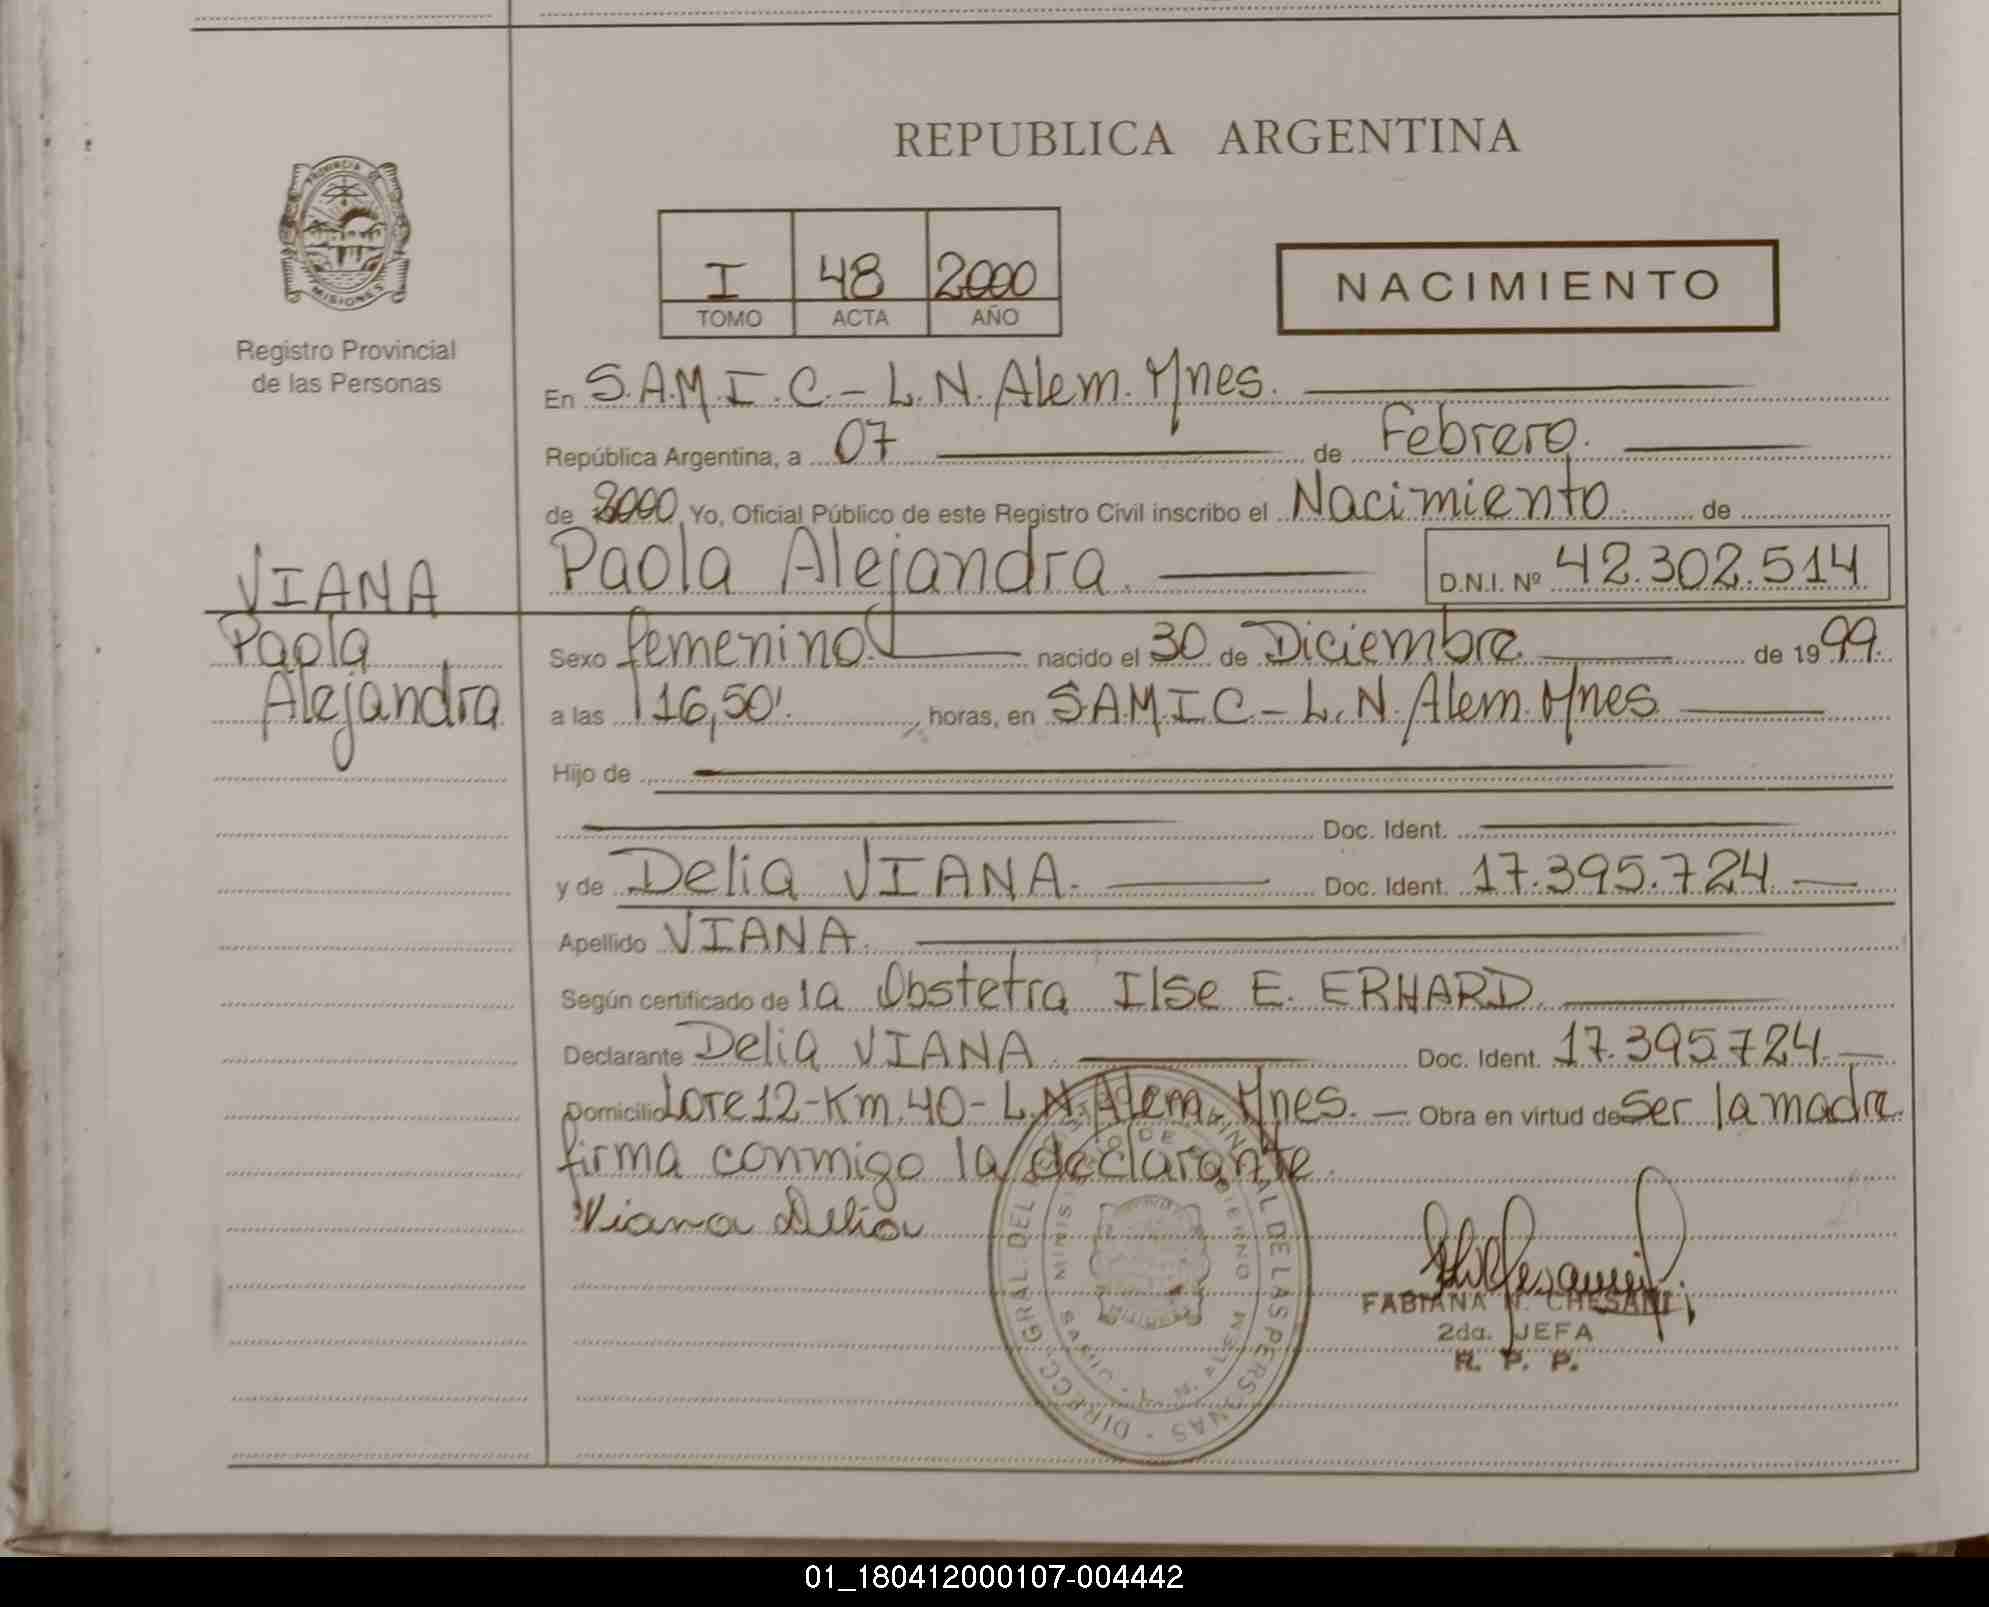 REPUBLICA ARGENTINA
PROVINCIA DE
MISIONES
Registro Provincial
de las Personas
I 48 2000
TOMO ACTA AÑO
NACIMIENTO
En S.A.M.I.C.- L.N. Alem. Mnes.
República Argentina, a 07 de Febrero.
de 2000 Yo, Oficial Público de este Registro Civil inscribo el Nacimiento de
Paola Alejandra. D.N.I. Nº 42.302.514
VIANA
Paola
Alejandra
Sexo femenino. nacido el 30 de Diciembre de 1999.
a las 16,50'. horas, en SAMIC - L.N. Alem. Mnes
Hijo de
Doc. Ident.
y de Delia VIANA. Doc. Ident. 17.395.724
Apellido VIANA.
Según certificado de la Obstetra Ilse E. ERHARD
Declarante Delia VIANA. Doc. Ident. 17.395.724.
Domicilio Lote 12-Km.40- L.N. Alem. Mnes. Obra en virtud de ser la madre.
firma conmigo la declarante.
Viana Delia
DIRECC. GRAL. DEL DE LAS PERSONAS
FABIANA N. CHESANI
2da. JEFA
R. P. P.
01_180412000107-004442